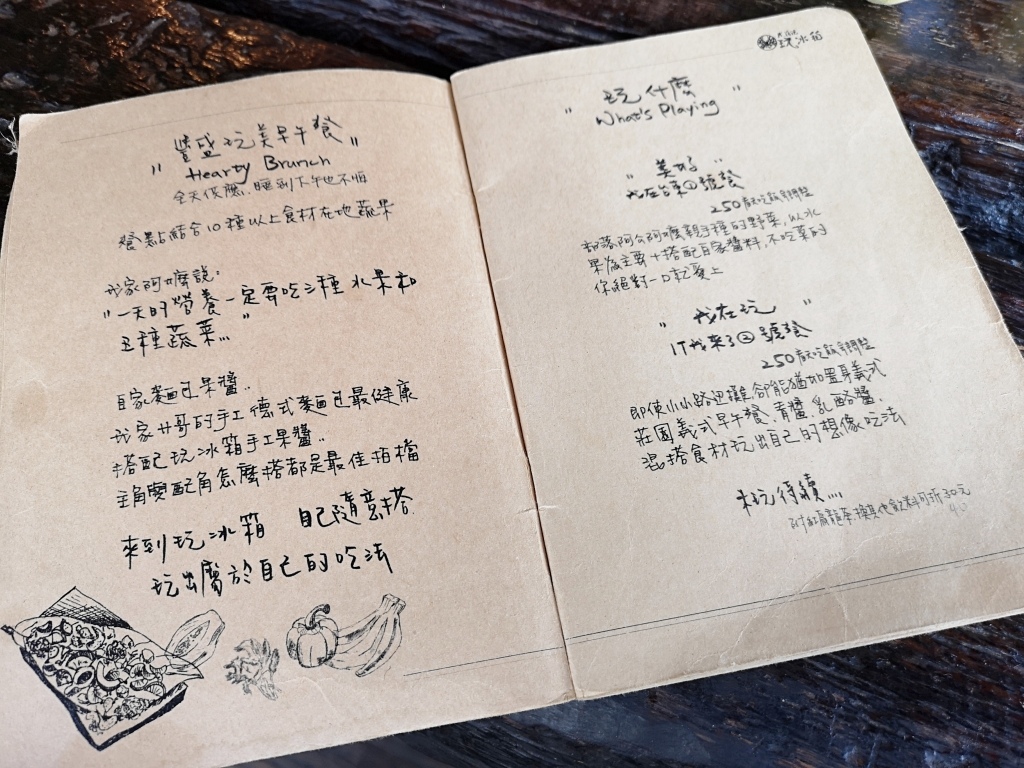 "豐盛玩美早午餐"
Hearty Brunch
全天供應..睡到下午也不怕
餐點結合10種以上食材在地蔬果
我家阿嬤說:
"一天的營養一定要吃三種水果和
五種蔬菜..."
自家麵包果醬..
我家廾哥的手工德式麵包最健康
搭配玩冰箱手工果醬..
主角變配角怎麼搭都是最佳拍檔
來到玩冰箱 自己隨意搭
玩出屬於自己的吃法
玩冰箱
"玩什麼"
What's Playing
"美好"
我在台東①號餐
250
部落阿公阿嬤親手種的野菜,以水
果為主要+搭配自家醬料,不吃菜的
你絕對一口就愛上
"我在玩"
IT我來了②號餐
250
即使小小路迢難卻能猶如置身義式
莊園義式早午餐.青醬.乳酪醬.
混搭食材玩出自己的想像吃法
未玩待續...
附紅扁龍茶.換其他飲料可折30元